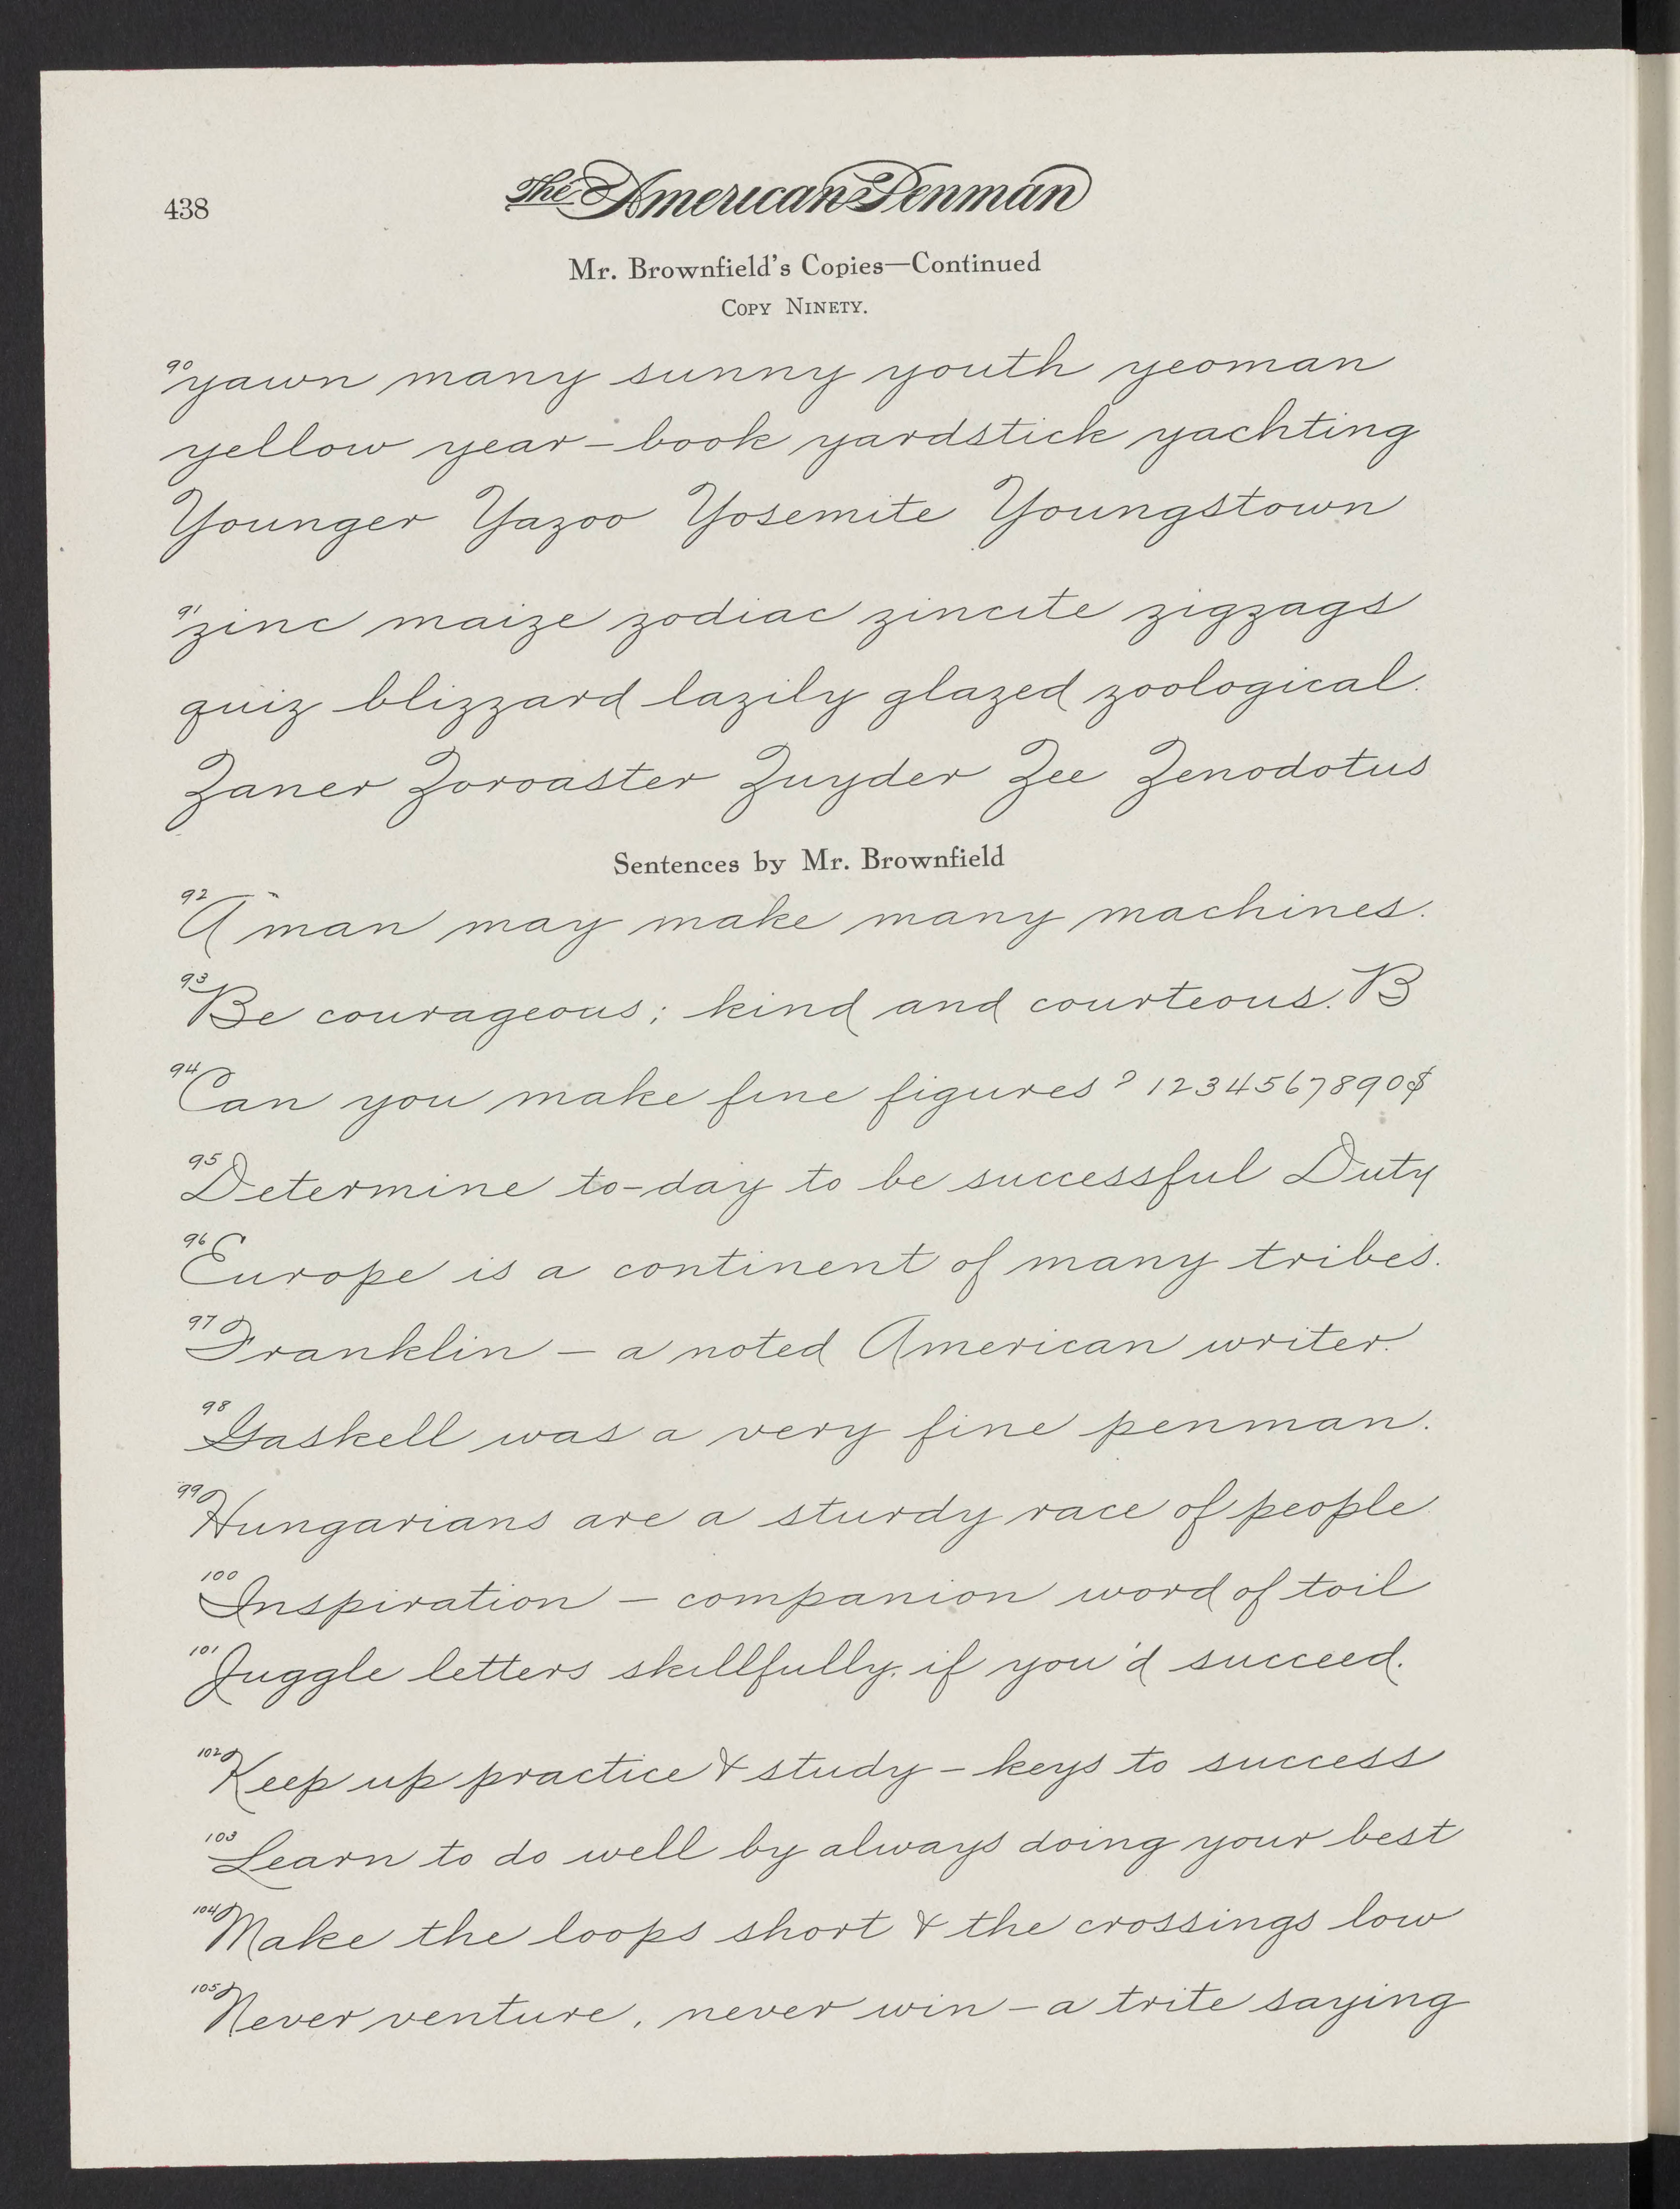 438
The American Penman
Mr. Brownfield's Copies—Continued
Copy Ninety.
90 yawn many sunny youth yeoman
yellow year-book yardstick yachting
Younger Yazoo Yosemite Youngstown
91 zinc maize zodiac zincite zigzags
quiz blizzard lazily glazed zoological.
Zaner Zoroaster Zuyder Zee Zenodotus
Sentences by Mr. Brownfield
92 A man may make many machines.
93 Be courageous; kind and courteous. B
94 Can you make fine figures? 1234567890$
95 Determine to-day to be successful Duty
96 Europe is a continent of many tribes.
97 Franklin — a noted American writer.
98 Gaskell was a very fine penman.
99 Hungarians are a sturdy race of people
100 Inspiration — companion word of toil
101 Juggle letters skillfully, if you'd succeed.
102 Keep up practice & study — keys to success
103 Learn to do well by always doing your best
104 Make the loops short & the crossings low
105 Never venture, never win — a trite saying